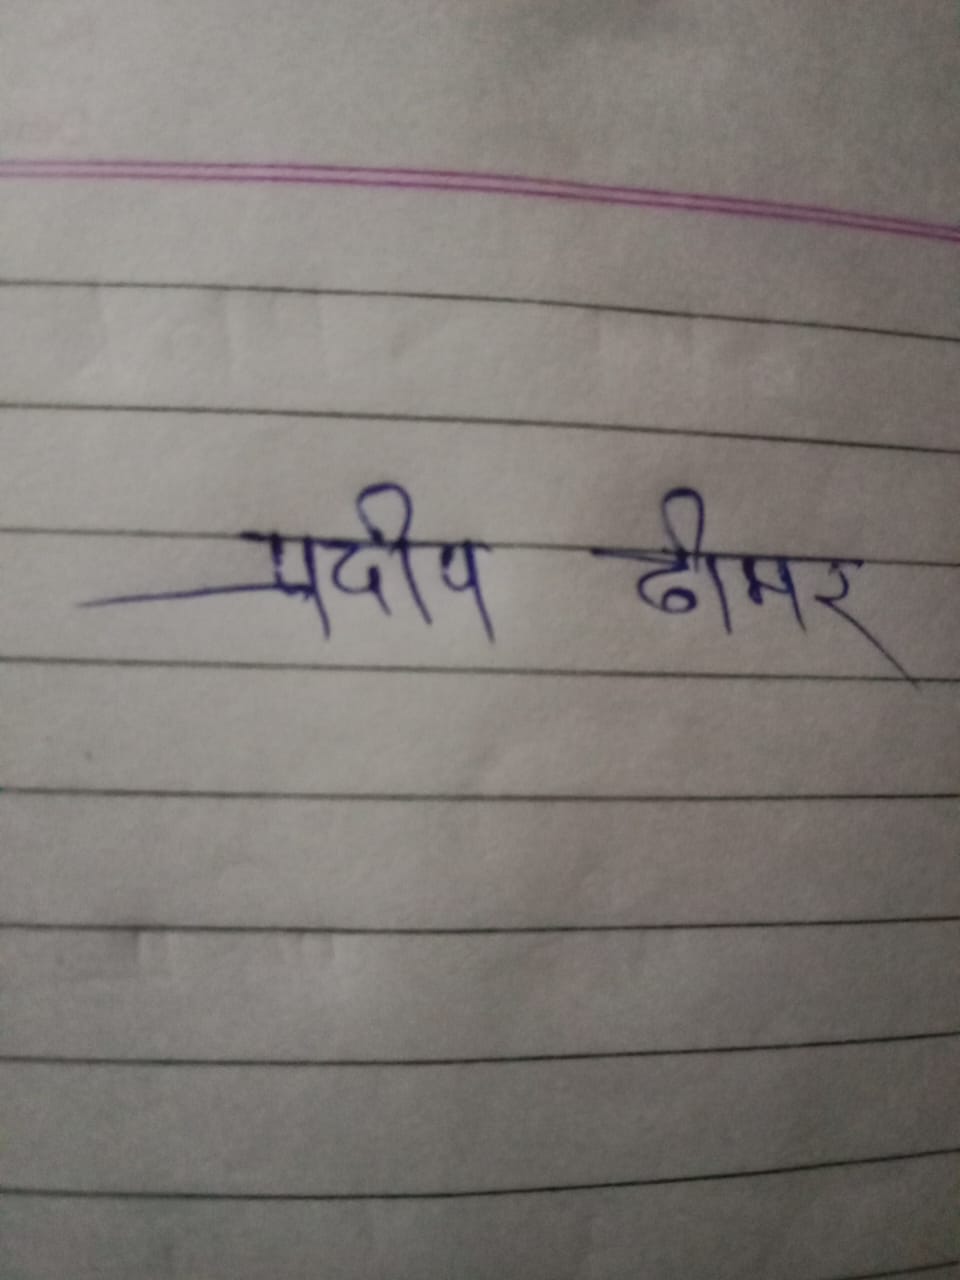 प्रदीप ढीमर